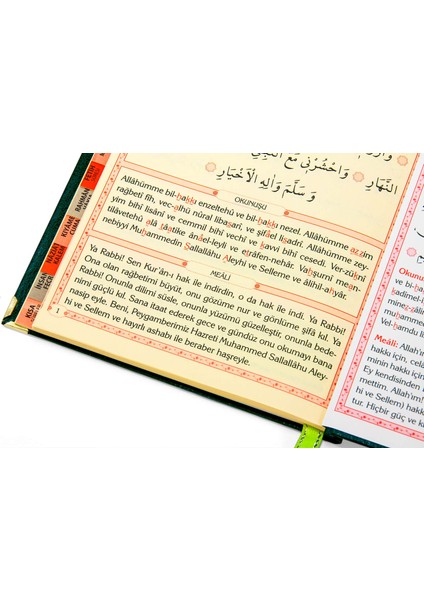 النَّهَارِ وَاحْشُرْنِي مَعَ النَّبِيِّ
وَسَلَّمَ وَاٰلِهِ الْاَخْيَارِ
OKUNUŞU
Allâhümme bil-hakkı enzeltehû ve bil-hakkı nezel. Allâhümme azzim
rağbetî fîh, vec-alhü nûral libasarî, ve şifâel lisadrî. Allâhümme zey-
yim bihî lisânî ve cemmil bihî vechî ve kavvi bihî cesedî. Ver-züknî
tilâvetehû alâ tâatike ânâel-leyli ve etrâfen-nehâr. Vahşurnî mean-
nebiyyi Muhammedin Sallallâhu Aleyhi ve Selleme ve âlihil-ahyâr.
MEÂLİ
Ya Rabbi! Sen Kur'ân-ı hak ile indirdin, o da hak ile indi. Ya Rabbi!
Ona olan rağbetimi büyüt, onu gözüme nur ve gönlüme şifâ kıl. Ya
Rabbi! Onunla dilimi süsle, onunla yüzümü güzelleştir, onunla bede-
nimi güçlü kıl. Sana itaat ederek gece ve gündüz onu okumayı bana
nasip eyle. Beni, Peygamberimiz Hazreti Muhammed Sallallâhu Aley-
hi ve Sellem ve hayırlı ashabı ile beraber haşreyle.
1
FETİH
RAHMAN
KIYAME
CUMA
İNSAN
FECR
KISA
Okunu
ve bi-ha
kadîmel-
Vel-hamdu l
Meâli: Allah'ım
hakkı için, cela
minin hakkı için,
Ey kendisinden
mettim. Allah'ım!
hi ve Sellem) hakkı
tur. Hiçbir güç ve k